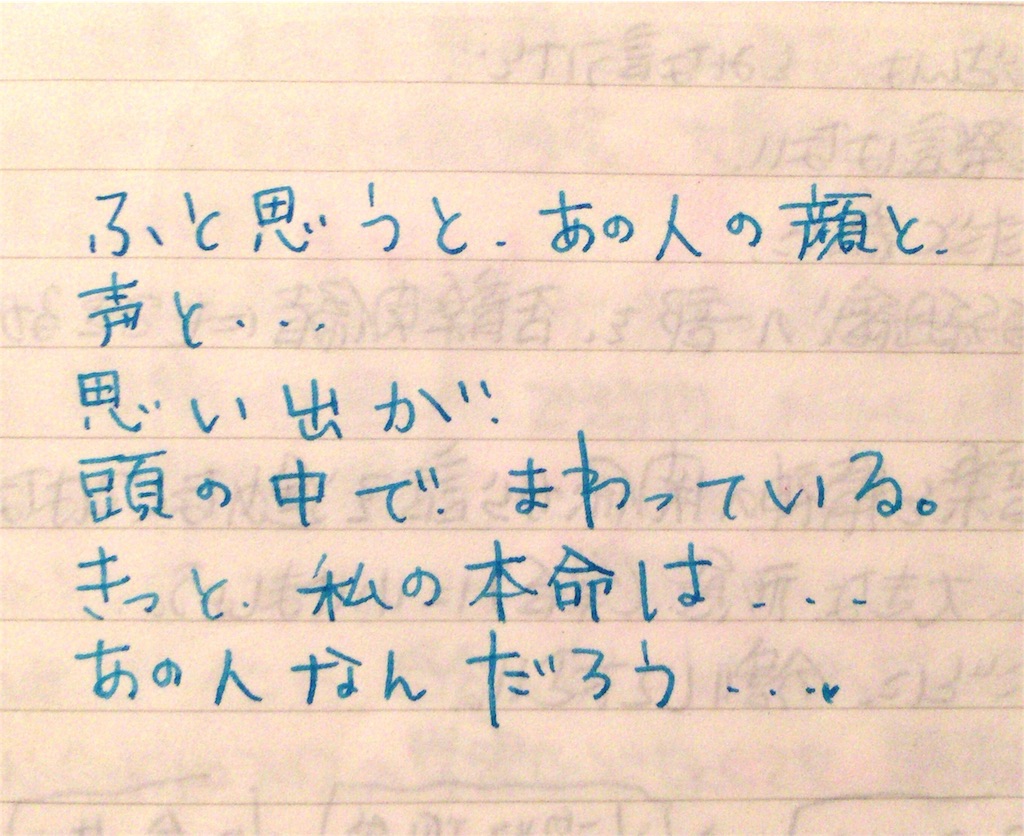 ふと思うと、あの人の顔と、
声と...
思い出が、
頭の中で、まわっている。
きっと、私の本命は....
あの人なんだろう....♥